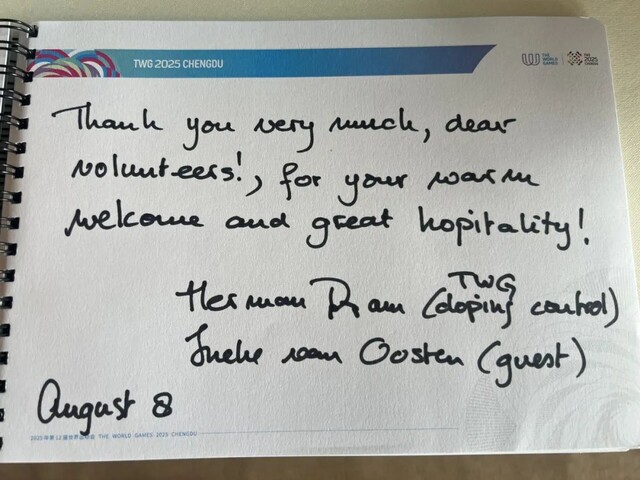 TWG 2025 CHENGDU
THE WORLD GAMES
THE WORLD GAMES 2025 CHENGDU
Thank you very much, dear
volunteers!, for your warm
welcome and great hopitality!
TWG
Herman Ram (doping control)
Ineke van Oosten (guest)
August 8
2025年第12届世界运动会 THE WORLD GAMES 2025 CHENGDU